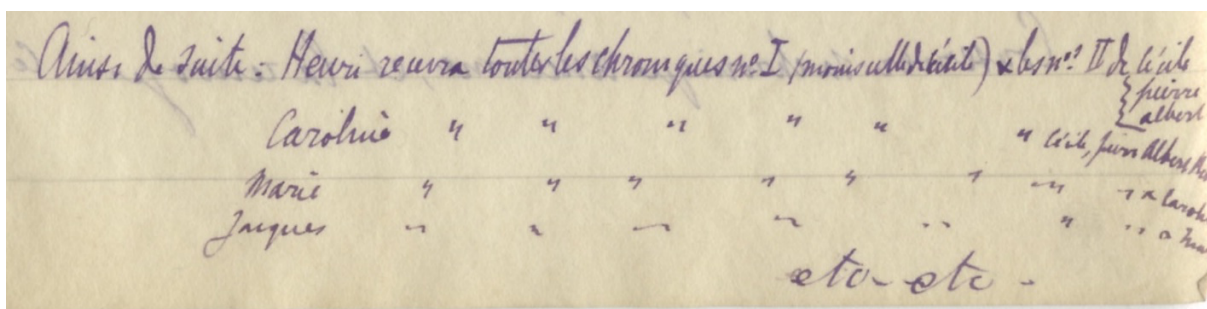 Ainsi de suite : Henri recevra toutes les chroniques nº I (moins celle de Cécile) & les nos II de Cécile
{ pierre
albert
Caroline " " " " " " Cécile, pierre Albert
Marie " " " " " " " " &
Jacques " " " " " " " &
etc - etc -